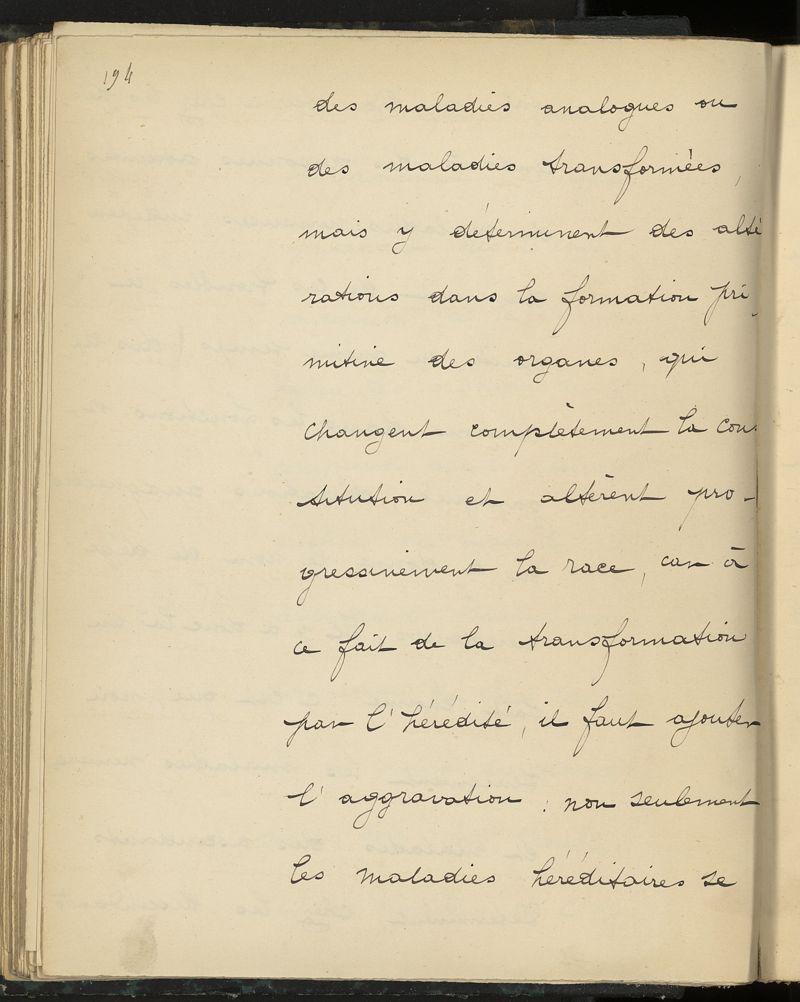 194
des maladies analogues ou
des maladies transformées,
mais y déterminent des alté
rations dans la formation pri
mitive des organes, qui
changent complètement la cons
titution et altèrent pro-
gressivement la race, car à
ce fait de la transformation
par l'hérédité, il faut ajouter
l'aggravation : non seulement
les maladies héréditaires se